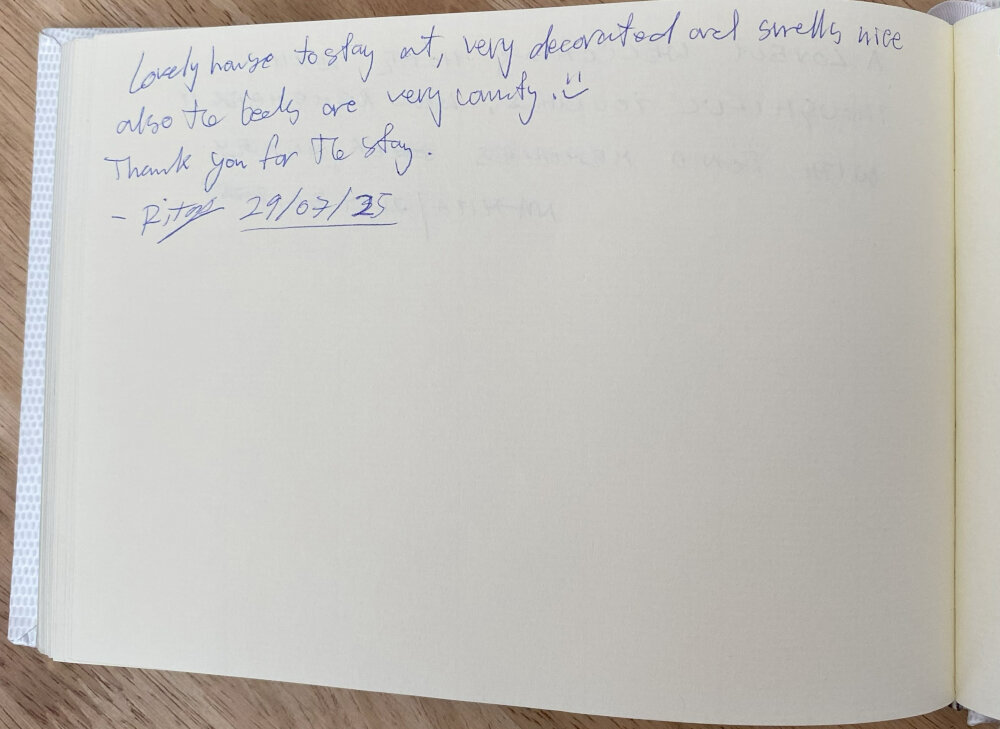 Lovely house to stay at, very decorated and smells nice
also the beds are very comfy. :)
Thank you for the stay.
- 29/07/25